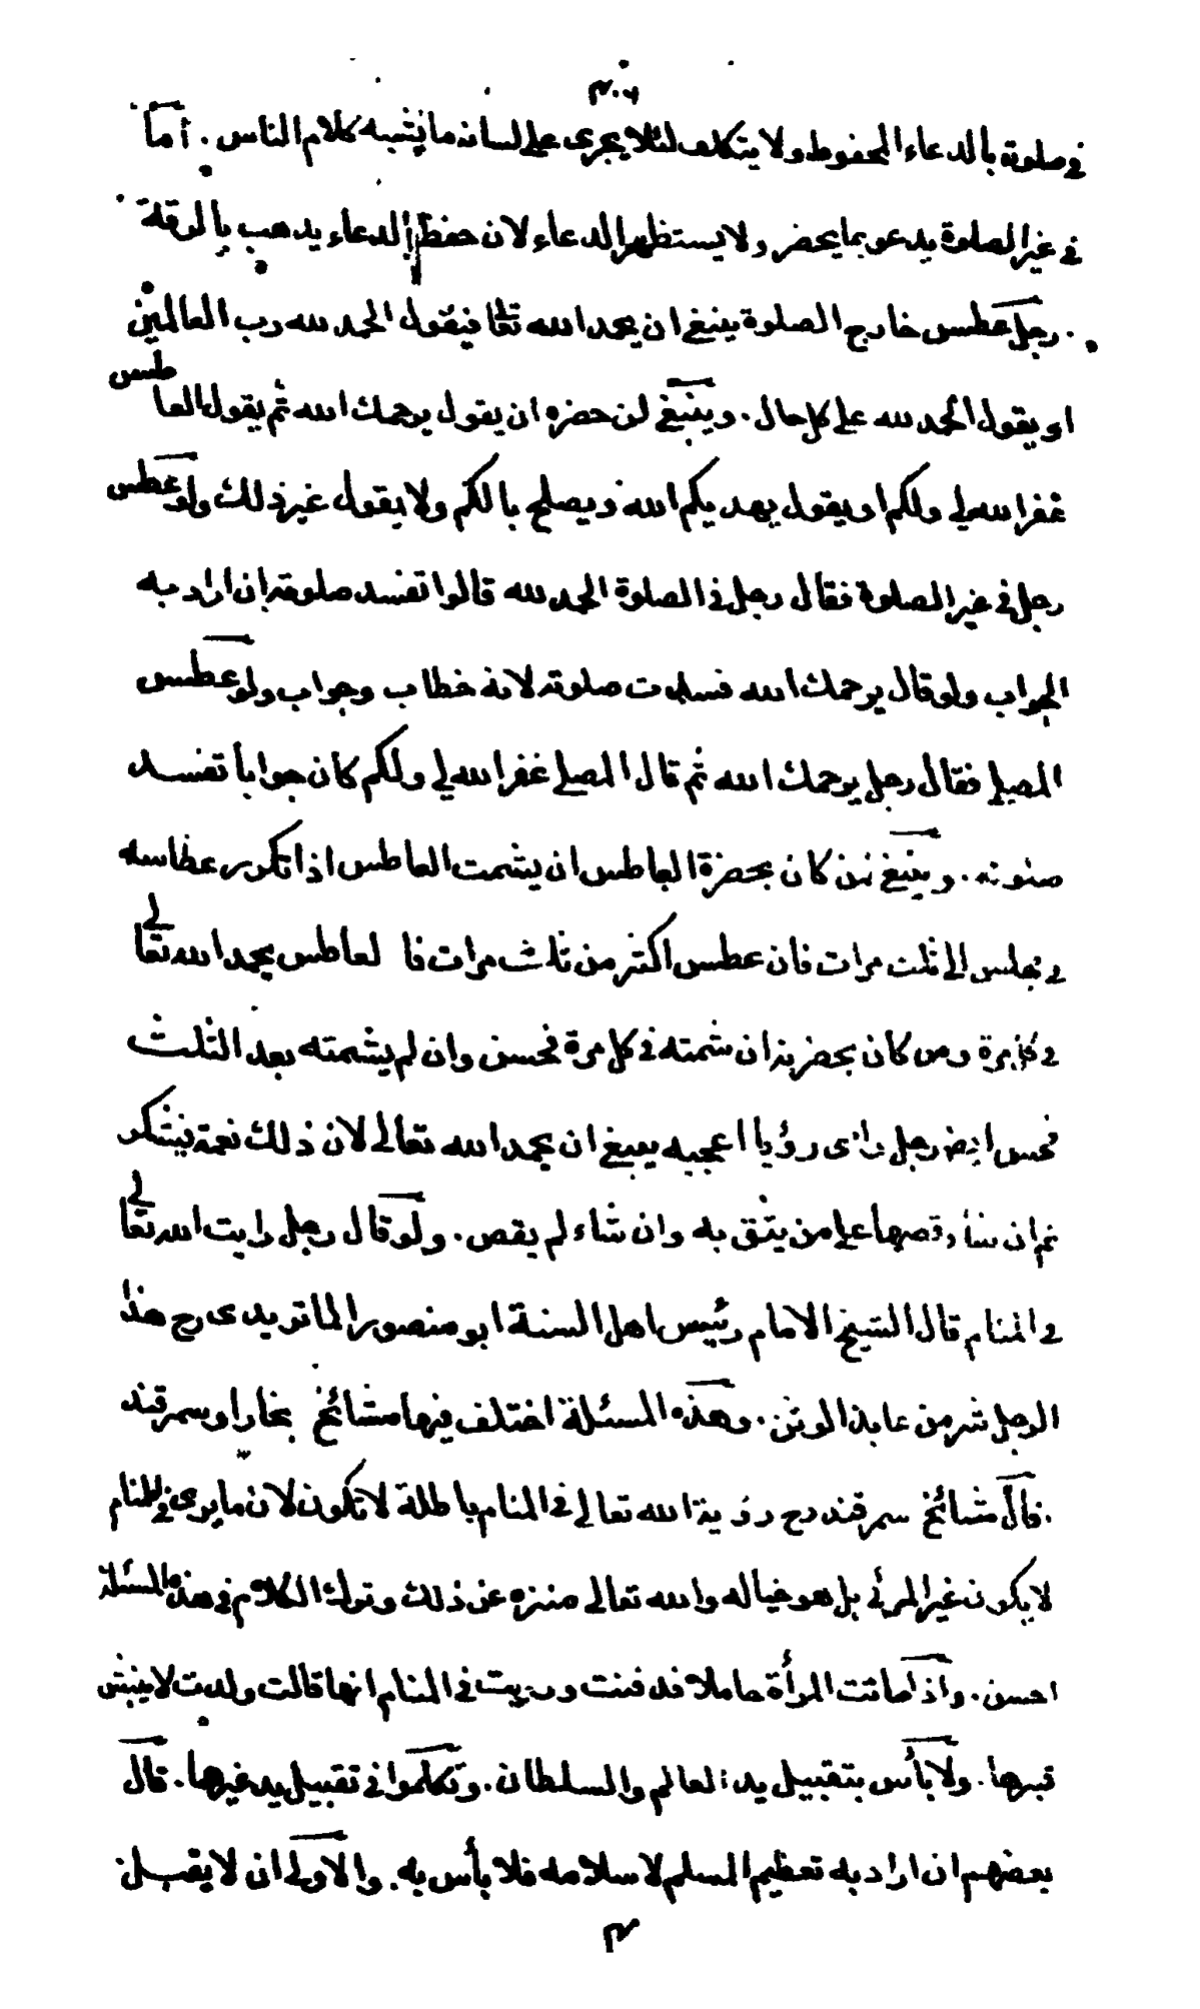 ٣٠٦
في صلوته بالدعاء المحفوظ ولا يتكلف لئلا يجرى على لسانه ما يشبه كلام الناس . أما
في غير الصلوة يدعو بما يحضر ولا يستظهر الدعاء لان حفظ الدعاء يذهب بالرقة
. رجل عطس خارج الصلوة ينبغي ان يحمد الله تعالى فيقول الحمد لله رب العالمين
او يقول الحمد لله على كل حال . وينبغي لمن حضره ان يقول يرحمك الله ثم يقول العاطس
غفر الله لي ولكم او يقول يهديكم الله ويصلح بالكم ولا يقول غير ذلك ولو عطس
رجل في غير الصلوة فقال رجل في الصلوة الحمد لله قالوا تفسد صلوته ان اراد به
الجواب ولو قال يرحمك الله فسدت صلوته لانه خطاب وجواب ولو عطس
المصلي فقال رجل يرحمك الله ثم قال المصلي غفر الله لي ولكم كان جوابا تفسد
صلوته . وينبغي لمن كان بحضرة العاطس ان يشمت العاطس اذا تكرر عطاسه
في مجلس الى ثلث مرات فان عطس اكثر من ثلث مرات فا لعاطس يحمد الله تعالى
في كل مرة ومن كان بحضرته ان شمته في كل مرة فحسن وان لم يشمته بعد الثلث
فحسن ايضا رجل رأى رؤيا اعجبه ينبغي ان يحمد الله تعالى لان ذلك نعمة فيشكر
ثم ان شاء قصها على من يثق به وان شاء لم يقص . ولو قال رجل رايت الله تعالى
في المنام قال الشيخ الامام رئيس اهل السنة ابو منصور الماتريدى رح هذا
الرجل شر من عابد الوثن . وهذه المسئلة اختلف فيها مشائخ بخارا وسمرقند
. قال مشائخ سمرقند رح رؤية الله تعالى في المنام باطلة لا تكون لان ما يرى في المنام
لا يكون غير المرئي بل هو خياله والله تعالى منزه عن ذلك وترك الكلام في هذه المسئلة
احسن . واذا ماتت المرأة حاملا فدفنت ورئيت في المنام انها قالت ولدت لا ينبش
قبرها . ولا بأس بتقبيل يد العالم والسلطان . وتكلموا في تقبيل يد غيرها . قال
بعضهم ان اراد به تعظيم المسلم لاسلامه فلا بأس به . والاولى ان لا يقبل .
م